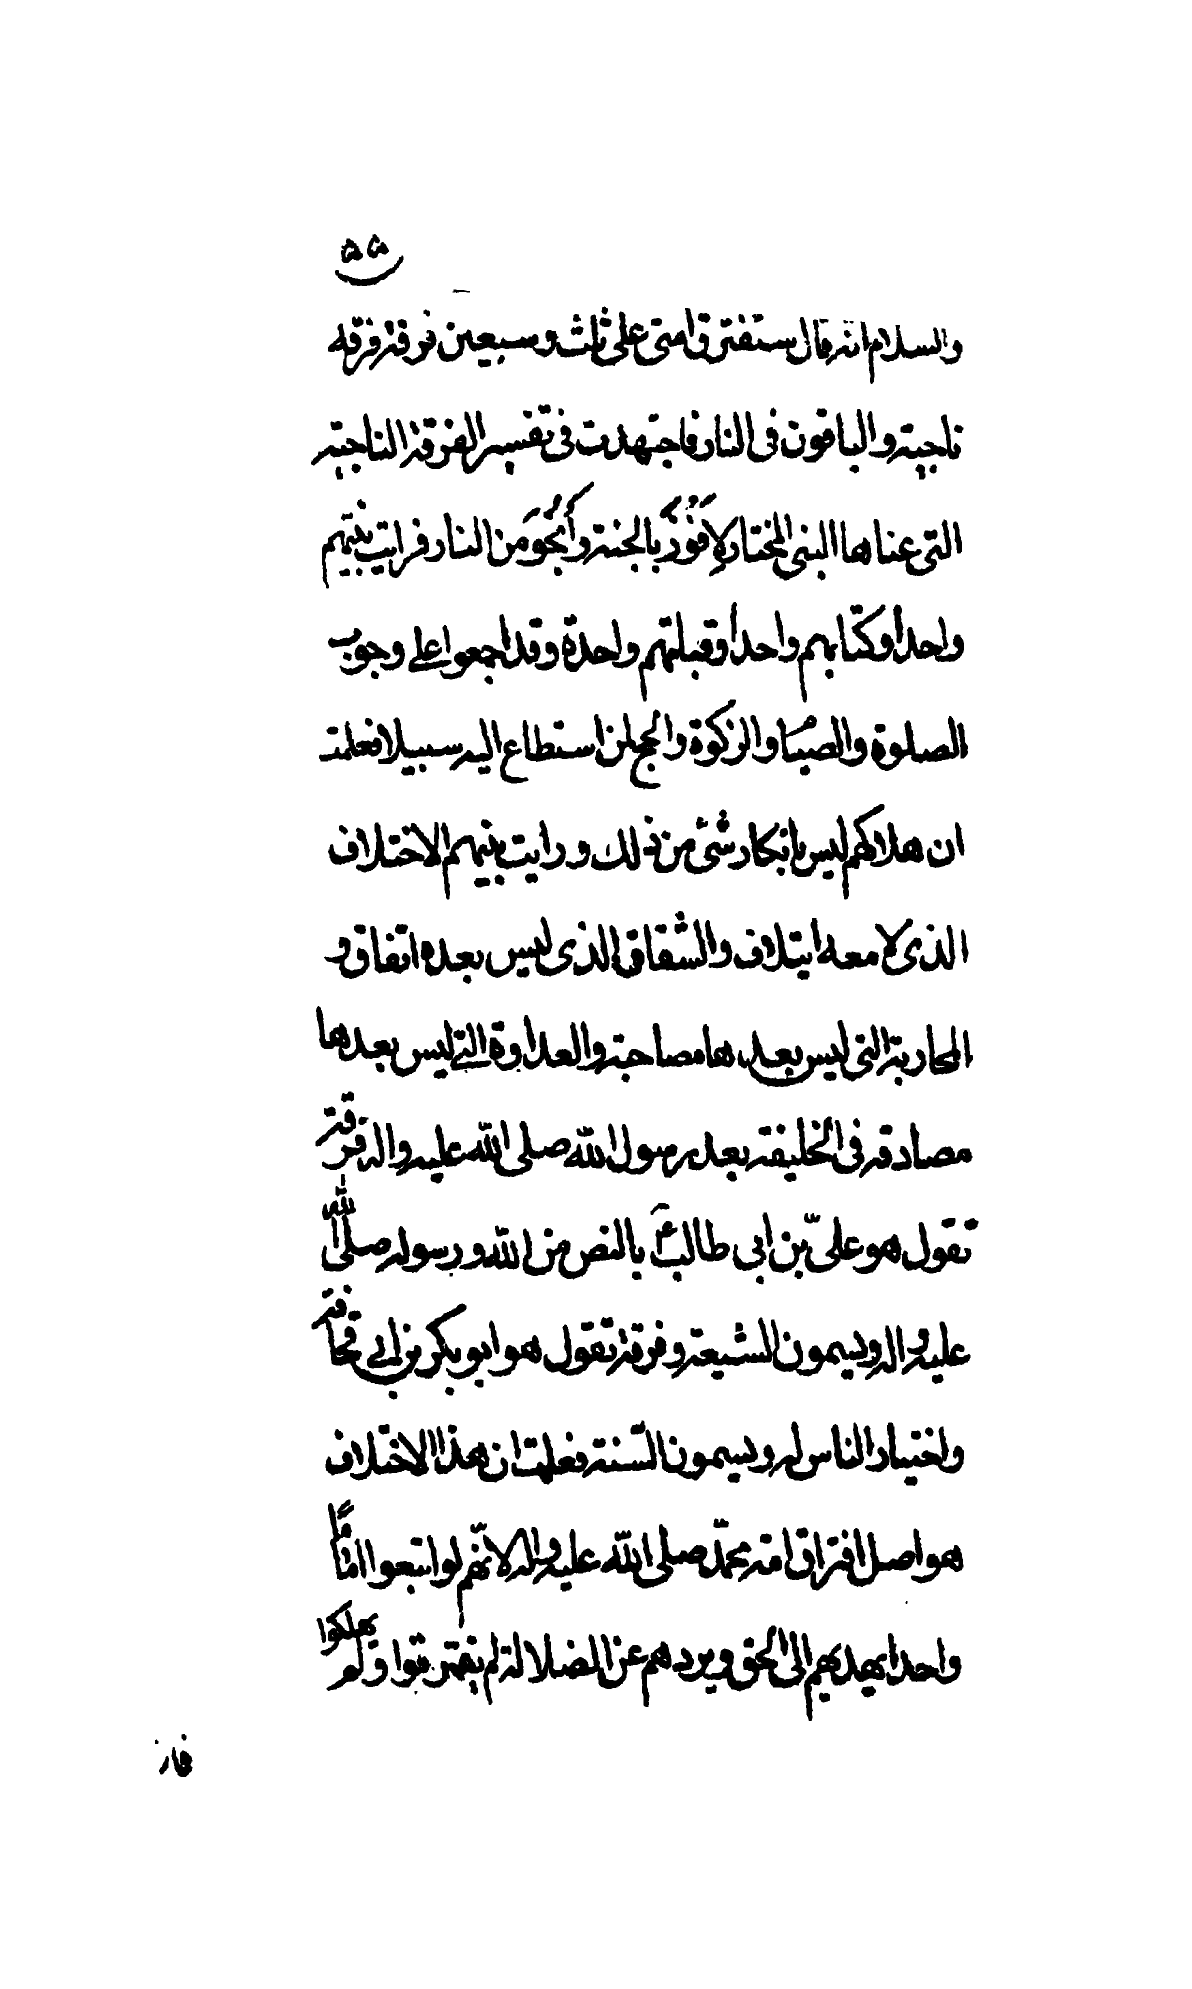 ۵۵
والسلام انه قال ستفترق امتى على ثلث وسبعين فرقة فرقه
ناجيته والباقون فى النار فاجتهدت فى تفسير الفرقة الناجيته
التى عناها النبى المختار لِاَفُوزَ بالجنته وأَنجُوَ من النار فرايت نبيّهم
واحداً وكتابهم واحداً وقبلتهم واحدة وقد اجمعوا على وجوب
الصلوة والصيام والزكوة والحج لمن استطاع اليه سبيلا فعلمت
ان هلاكهم ليس بانكار شئ من ذلك ورايت بينهم الاختلاف
الذى لا معه ايتلاف والشقاق الذى ليس بعده اتفاق و
المحاربة التى ليس بعدها مصاحبة والعداوة التى ليس بعدها
مصادقه فى الخليفته بعد رسول الله صلى الله عليه واله فرقته
تقول هو علىّ بن ابى طالبؑ بالنص من الله ورسوله صلى الله
عليه واله ويسمون الشيعته وفرقة تقول هو ابو بكر بن ابى قحافته
واختيار الناس له ويسمون السّنته فعلمت ان هذا الاختلاف
هو اصل افتراق امته محمّد صلى الله عليه واله لانّهم لو اتبعوا امامًا
واحدا يهديهم الى الحق ويردهم عن الضلالة لم يفترقوا ولم يهلكوا